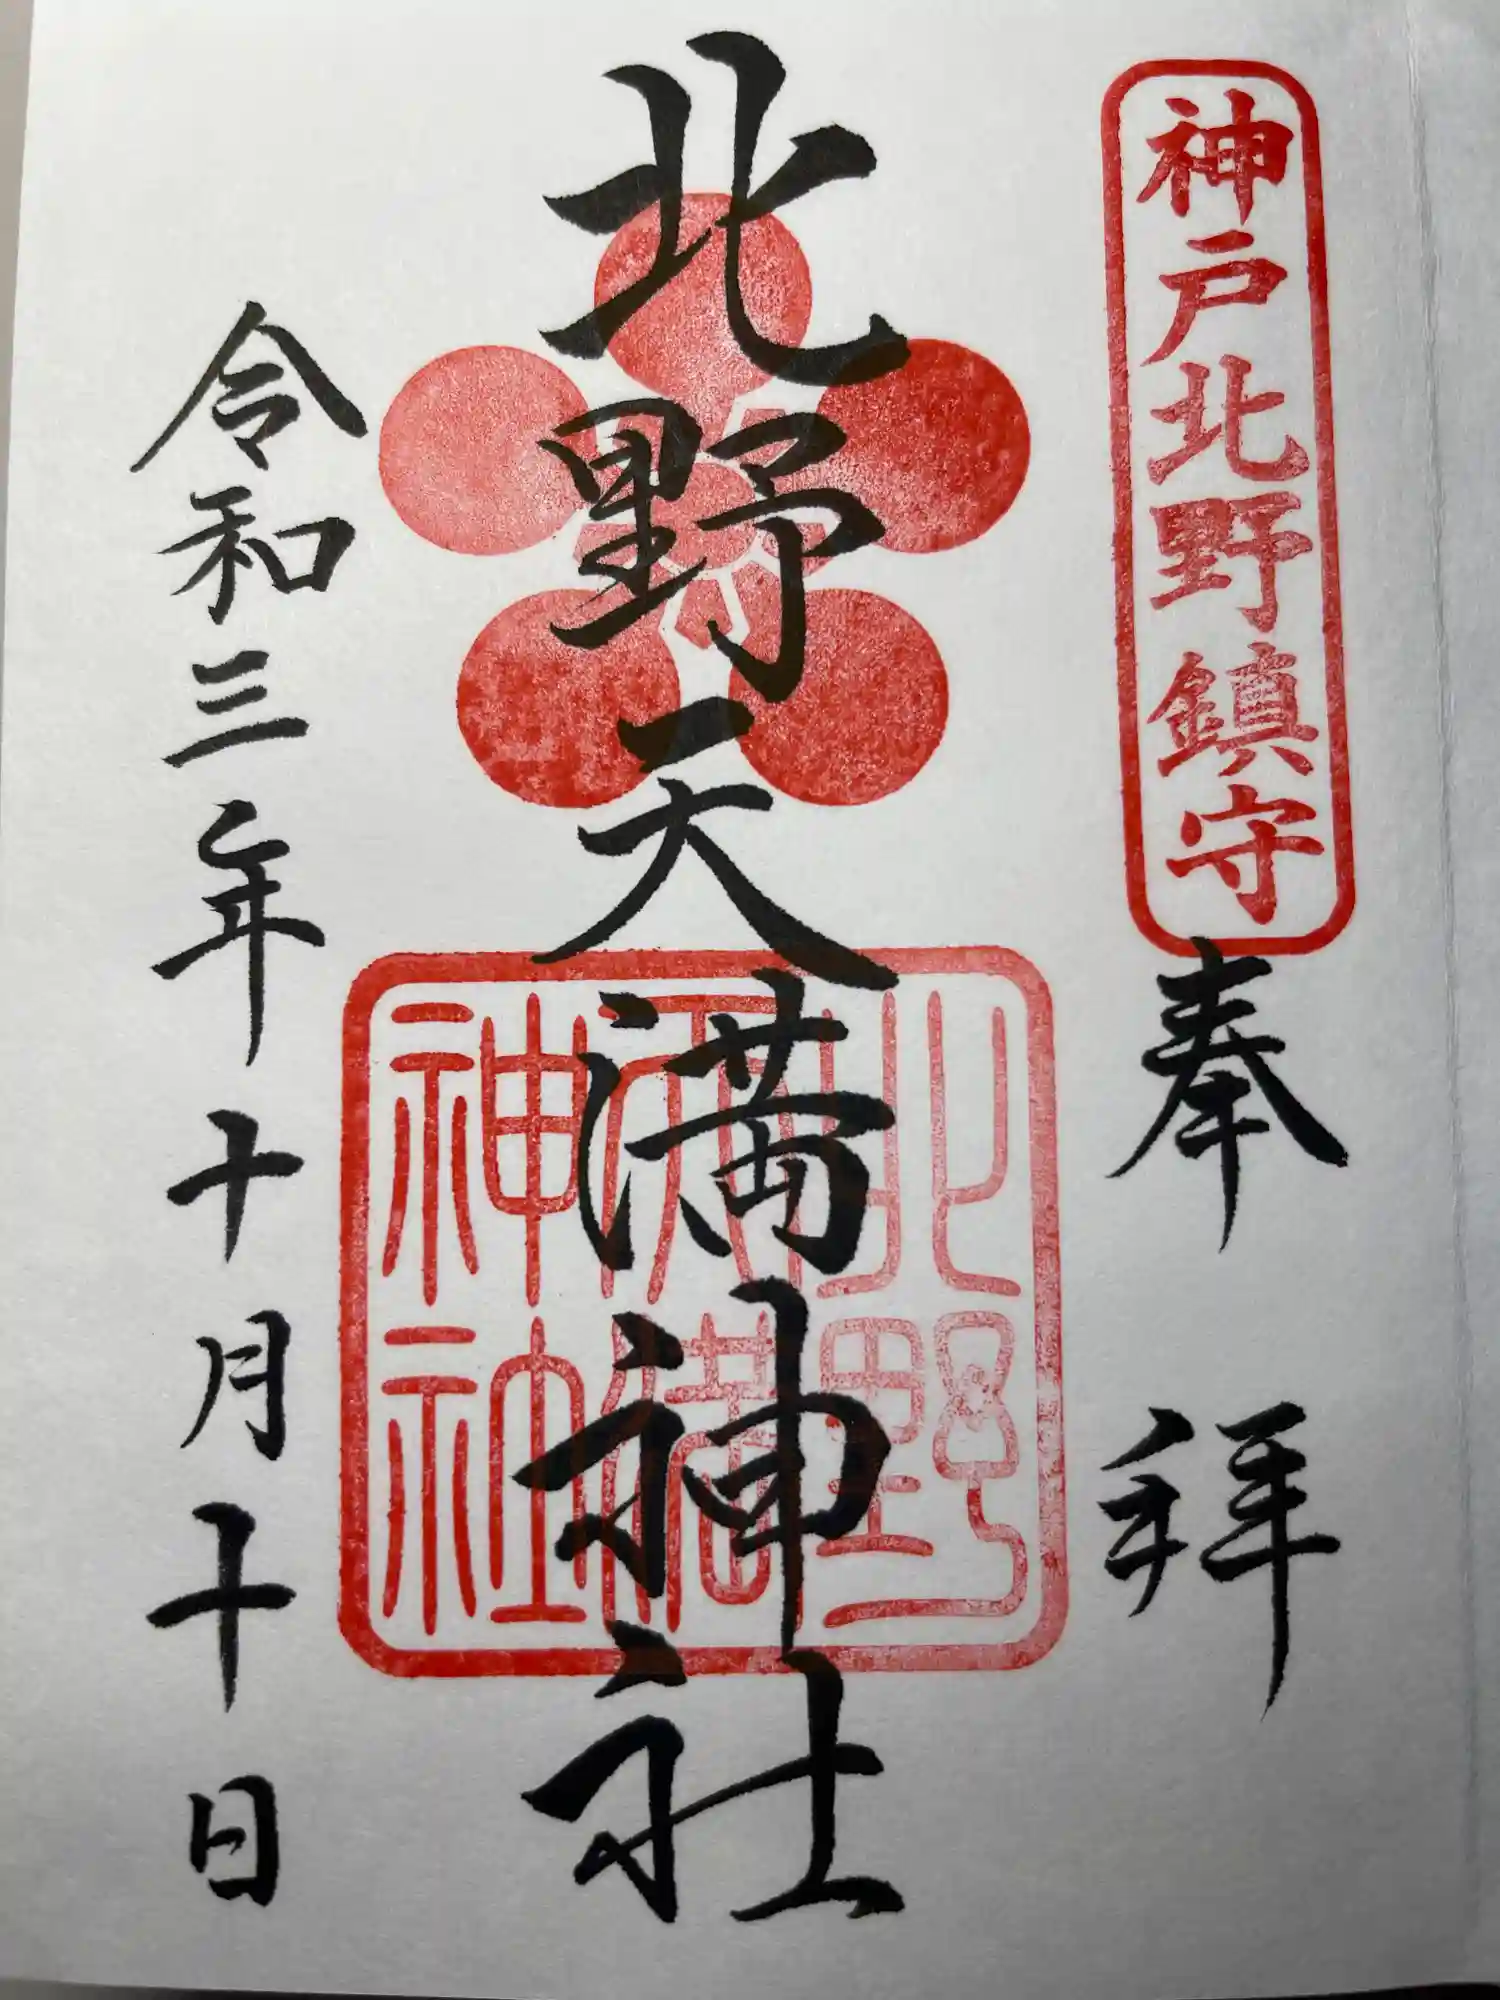 神戸北野鎮守
奉拝
北野天満神社
北野
天満
神社
令和三年十月十日